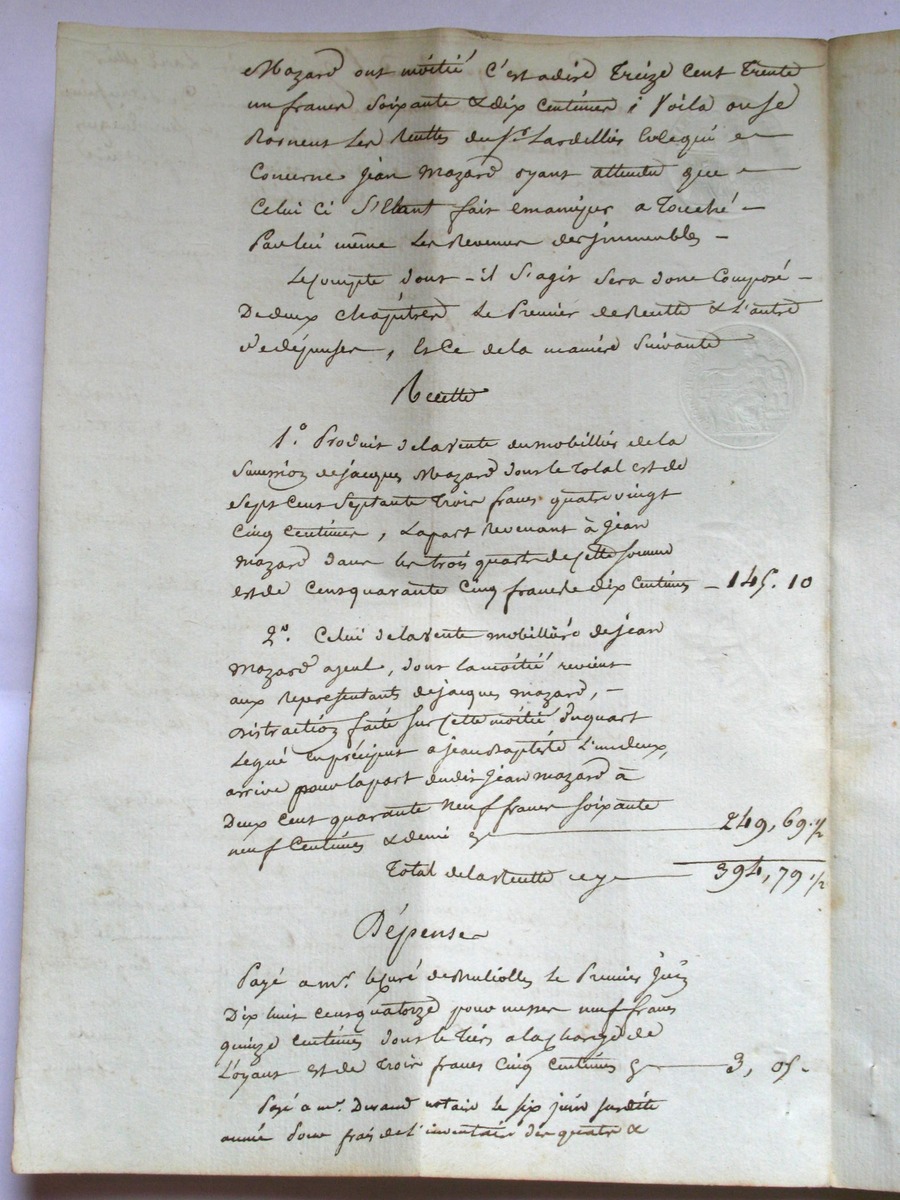 Mazard ont moitié c'est adire Treize Cent Trente
un francs Soixante & dix Centimes ; Voila ou se
Bornent Les Recettes du Sr. Lardellier En ce qui
Concerne Jean Mazard oyant attendu que
Celui Ci S'Etant fait emanciper a Touché
Par lui même Les Revenus des jmmeubles
Le Compte dont il S'agit Sera donc Composé
De deux Chapitres Le Premier de Recette & L'autre
de dépenses, Et Ce de la maniere Suivante
Recette
1.º Produit de la vente du mobillier de la
Succession de jacques Mazard dont le Total est de
Sept Cent Septante Trois francs quatre vingt
Cinq Centimes, La part Revenant à Jean
Mazard dans les trois quarts de Cette Somme
est de Cent quarante Cinq francs & dix Centimes 145. 10
2º. Celui de la vente mobilliére de jean
Mazard ayeul, dont la moitié revient
aux Représentants de jacques Mazard,
distraction faite sur Cette moitié du quart
Legué en préciput a jean Baptiste L'un deux,
arrive pour la part dudit jean Mazard à
Deux Cent quarante Neuf francs Soixante
neuf Centimes & demi Cy 249, 69. 1/2
Total de la Recette Cy 394, 79 1/2
Dépenses
Payé a mr. le Curé de Le Premier Juin
Dix huit Cent quatorze pour messes neuf francs
quinze Centimes dont le Tiers a la Charge de
L'oyant est de Trois francs Cinq Centimes Cy 3, 05.
Payé a mr. Durand notaire Le Six juin Susdite
année Pour frais de L'inventaire des quatre &